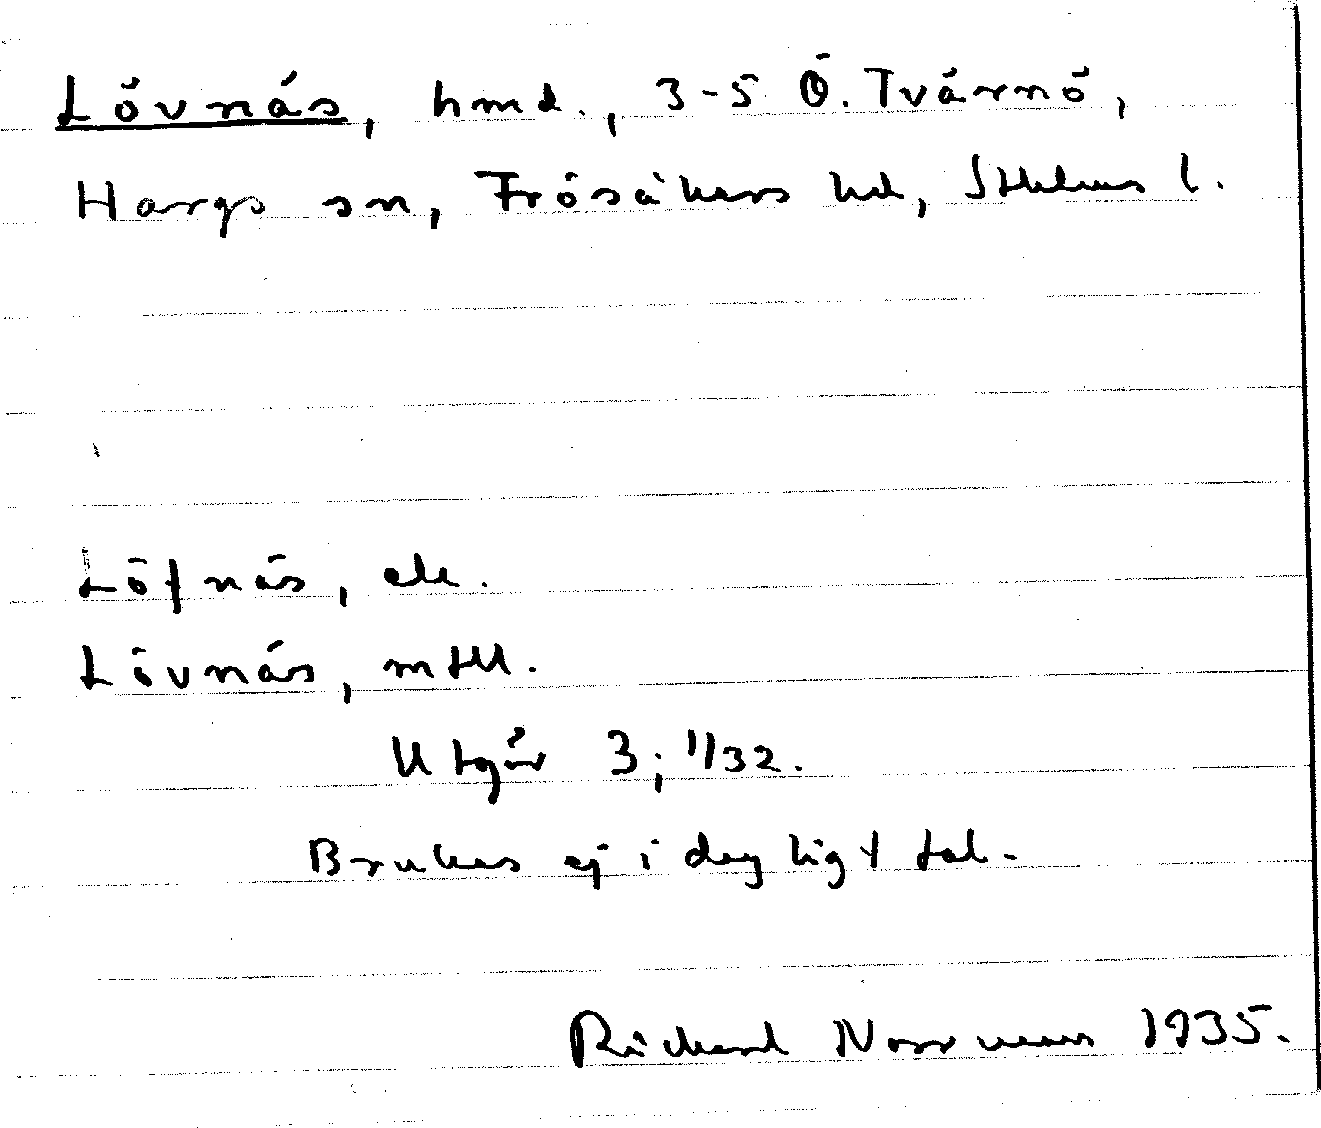 Lövnäs, hmd., 3-5 Ö. Tvärnö,
Hargs sn, Frösåkers hd, Sthlms l.
Löfnäs, ek.
Lövnäs, mtll.
Utgår 3; 1/32.
Brukas ej i dagligt tal.
Richard Norrman 1935.